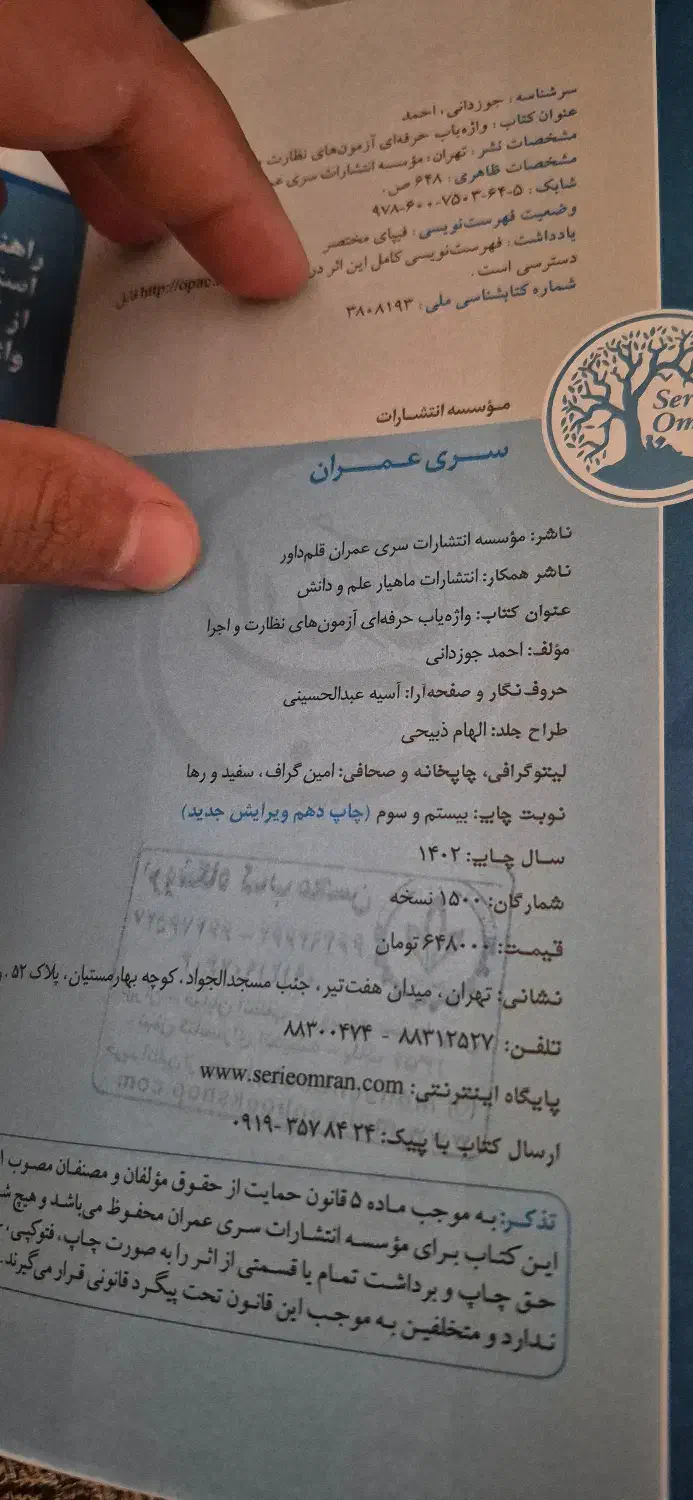 سرشناسه: جوزدانی، احمد
عنوان کتاب: واژه‌یاب حرفه‌ای آزمون‌های نظارت
مشخصات نشر: تهران: مؤسسه انتشارات سری
مشخصات ظاهری: ۶۴۸ ص.
شابک: ۵-۶۴-۷۵۰۳-۶۰۰-۹۷۸
وضعیت فهرست‌نویسی: فیپای مختصر
یادداشت: فهرست‌نویسی کامل این اثر در http://opac. قابل
دسترسی است.
شماره کتابشناسی ملی: ۳۸۰۸۱۹۳
مؤسسه انتشارات
سری عمران
ناشر: مؤسسه انتشارات سری عمران قلم‌داور
ناشر همکار: انتشارات ماهیار علم و دانش
عنوان کتاب: واژه‌یاب حرفه‌ای آزمون‌های نظارت و اجرا
مؤلف: احمد جوزدانی
حروف‌نگار و صفحه‌آرا: آسیه عبدالحسینی
طراح جلد: الهام ذبیحی
لیتوگرافی، چاپخانه و صحافی: امین گراف، سفید و رها
نوبت چاپ: بیستم و سوم (چاپ دهم ویرایش جدید)
سال چاپ: ۱۴۰۲
شمارگان: ۱۵۰۰ نسخه
قیمت: ۶۴۸۰۰۰ تومان
نشانی: تهران، میدان هفت‌تیر، جنب مسجدالجواد، کوچه بهارمستیان، پلاک ۵۲،
تلفن: ۸۸۳۱۲۵۲۷ - ۸۸۳۰۰۴۷۴
پایگاه اینترنتی: www.serieomran.com
ارسال کتاب با پیک: ۲۴ ۸۴ ۳۵۷ -۰۹۱۹
تذکر: به موجب ماده ۵ قانون حمایت از حقوق مؤلفان و مصنفان مصوب
این کتاب برای مؤسسه انتشارات سری عمران محفوظ می‌باشد و هیچ
حق چاپ و برداشت تمام یا قسمتی از اثر را به صورت چاپ، فتوکپی،
ندارد و متخلفین به موجب این قانون تحت پیگرد قانونی قرار می‌گیرند.